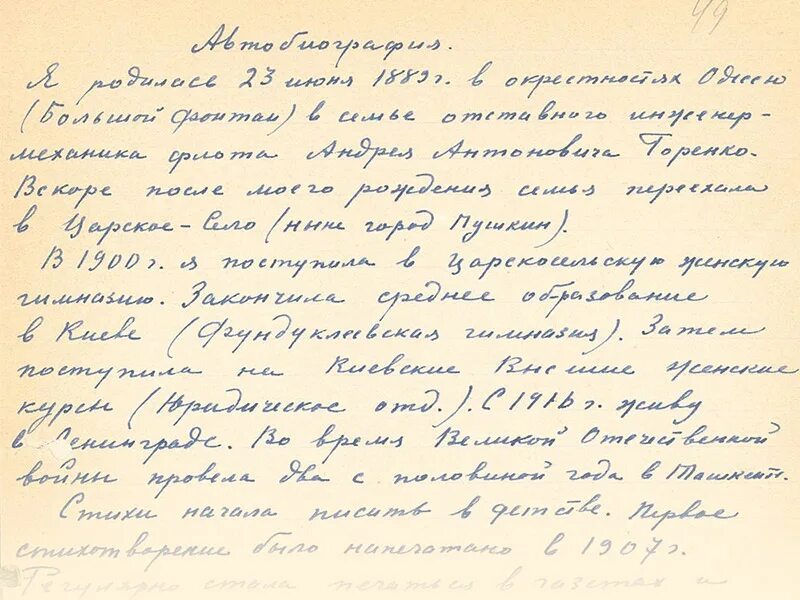 49
Автобиография.
Я родилась 23 июня 1889г. в окрестностях Одессы
(Большой Фонтан) в семье отставного инженер-
механика флота Андрея Антоновича Горенко.
Вскоре после моего рождения семья переехала
в Царское-Село (ныне город Пушкин).
В 1900г. я поступила в Царскосельскую женскую
гимназию. Закончила среднее образование
в Киеве (Фундуклеевская гимназия). Затем
поступила на Киевские Высшие женские
курсы (Юридическое отд.). С 1916г. живу
в Ленинграде. Во время Великой Отечественной
войны провела два с половиной года в Ташкенте.
Стихи начала писать в детстве. Первое
стихотворение было напечатано в 1907г.
Регулярно стала печаться в газетах и